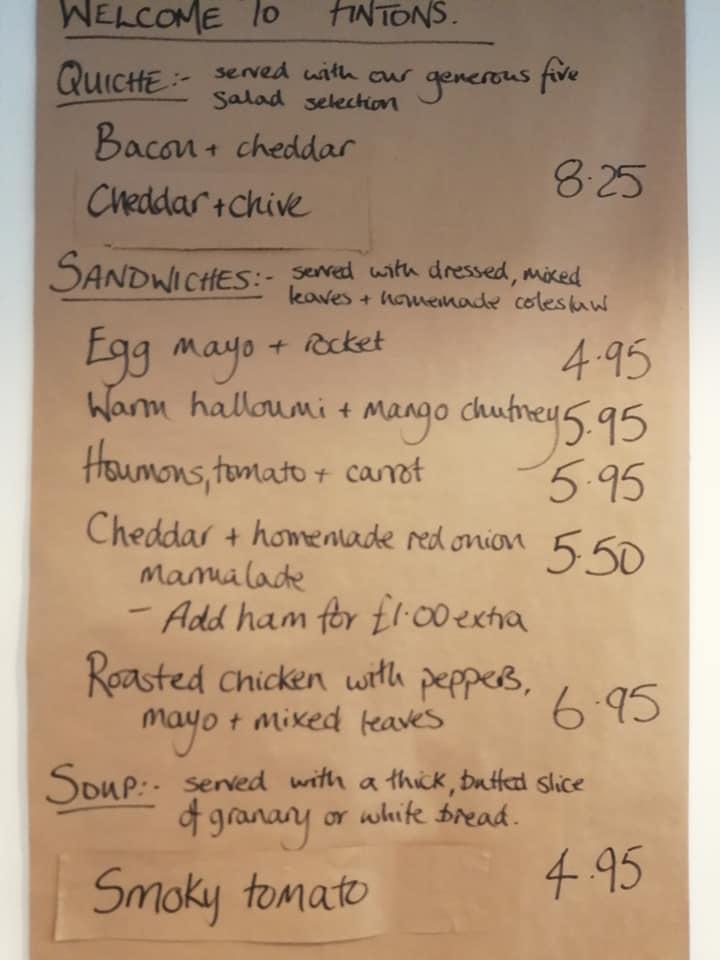 WELCOME TO FINTONS.
QUICHE:- served with our generous five
salad selection
Bacon + cheddar
Cheddar + chive 8.25
SANDWICHES:- served with dressed, mixed
leaves + homemade coleslaw
Egg mayo + rocket 4.95
Warm halloumi + mango chutney 5.95
Houmous, tomato + carrot 5.95
Cheddar + homemade red onion 5.50
marmalade
- Add ham for £1.00 extra
Roasted chicken with peppers,
mayo + mixed leaves 6.95
SOUP:- served with a thick, butted slice
of granary or white bread.
Smoky tomato 4.95